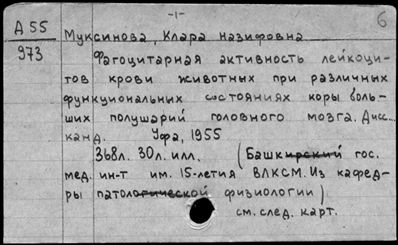 -1-
6
А 55
973
Муксинова, Клара Назифовна
Фагоцитарная активность лейкоци-
тов крови животных при различных
функциональных состояниях коры боль-
ших полушарий головного мозга. Дисс...
канд. Уфа, 1955
368л. 30л. илл. (Башкирский гос.
мед. ин-т им. 15-летия ВЛКСМ. Из кафед-
ры патологической физиологии)
см. след. карт.